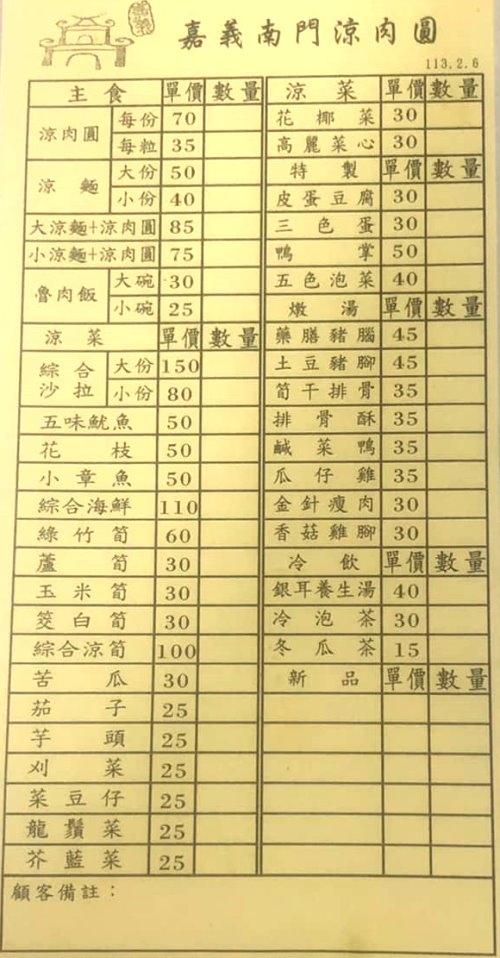 嘉義南門涼肉圓
113.2.6
主食 單價 數量
涼肉圓 每份 70
每粒 35
涼麵 大份 50
小份 40
大涼麵+涼肉圓 85
小涼麵+涼肉圓 75
魯肉飯 大碗 30
小碗 25
涼菜 單價 數量
綜合沙拉 大份 150
小份 80
五味魷魚 50
花枝 50
小章魚 50
綜合海鮮 110
綠竹筍 60
蘆筍 30
玉米筍 30
筊白筍 30
綜合涼筍 100
苦瓜 30
茄子 25
芋頭 25
刈菜 25
菜豆仔 25
龍鬚菜 25
芥藍菜 25
涼菜 單價 數量
花椰菜 30
高麗菜心 30
特製 單價 數量
皮蛋豆腐 30
三色蛋 30
鴨掌 50
五色泡菜 40
燉湯 單價 數量
藥膳豬腦 45
土豆豬腳 45
筍干排骨 35
排骨酥 35
鹹菜鴨 35
瓜仔雞 35
金針瘦肉 30
香菇雞腳 30
冷飲 單價 數量
銀耳養生湯 40
冷泡茶 30
冬瓜茶 15
新品 單價 數量
顧客備註：